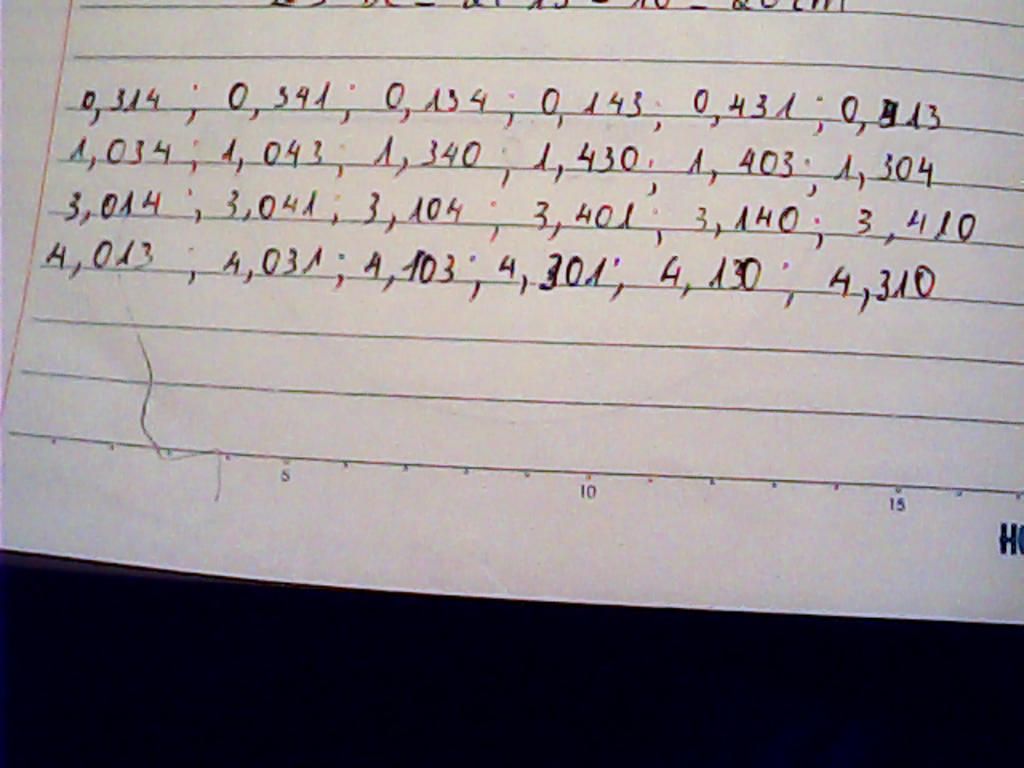 0,314 ; 0,341 ; 0,134 ; 0,143 ; 0,431 ; 0,413
1,034 ; 1,043 ; 1,340 ; 1,430 ; 1,403 ; 1,304
3,014 ; 3,041 ; 3,104 ; 3,401 ; 3,140 ; 3,410
4,013 ; 4,031 ; 4,103 ; 4,301 ; 4,130 ; 4,310
5 10 15